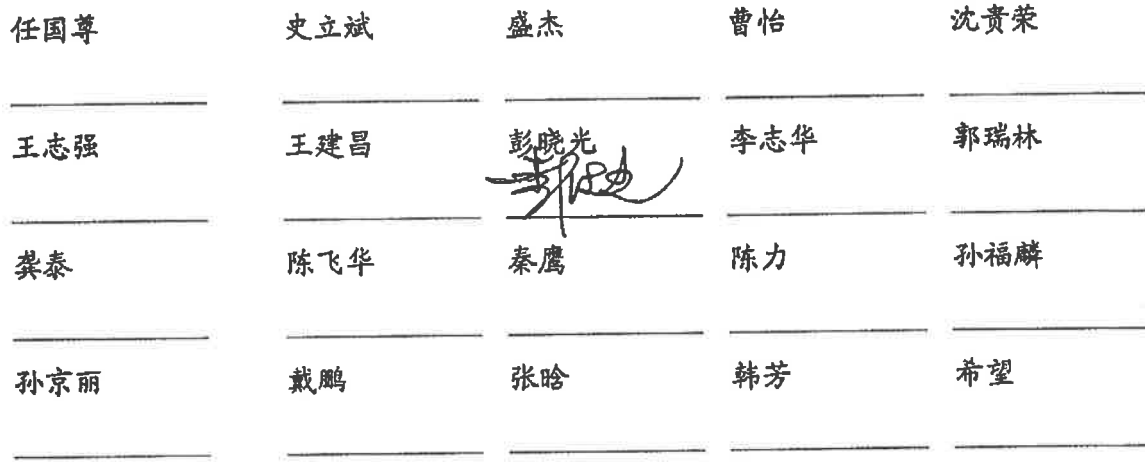 任国尊 史立斌 盛杰 曹怡 沈贵荣
王志强 王建昌 彭晓光 李志华 郭瑞林
龚泰 陈飞华 秦鹰 陈力 孙福麟
孙京丽 戴鹏 张晗 韩芳 希望